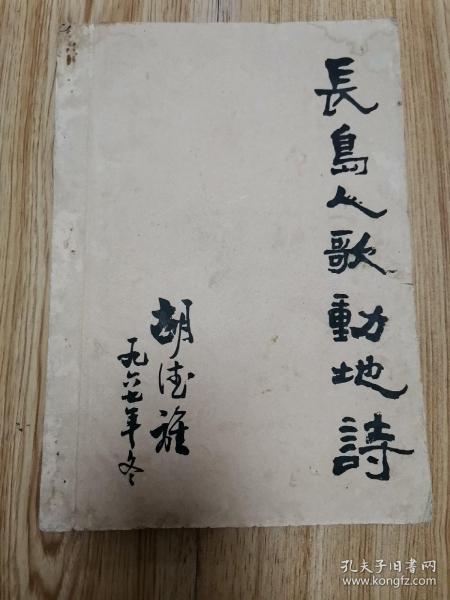 長島人歌動地詩
胡德雅
一九六七年冬
孔夫子旧书网
www.kongfz.com